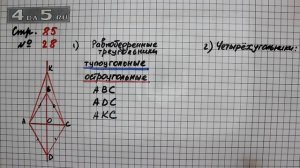 4da5.ru
Стр. 85
№ 28
1) Равнобедренные
треугольники
тупоугольные
остроугольные
ABC
ADC
AKC
2) Четырёхугольники:
K
B
A
O
C
D